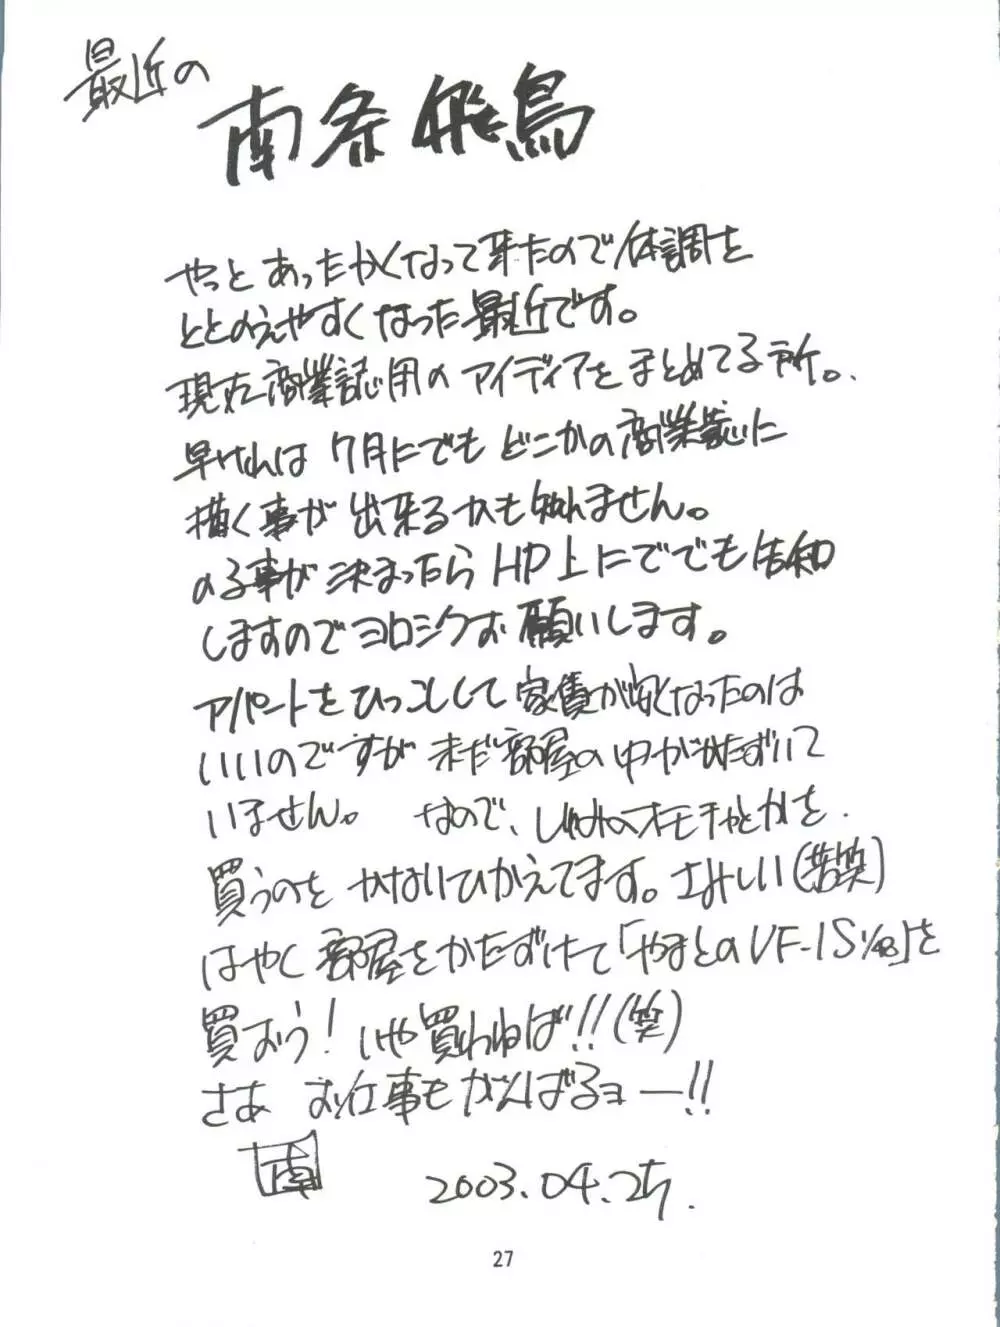 最近の
南条飛鳥
やっと あったかくなって来たので体調を
ととのえやすくなった最近です。
現在商業誌用のアイディアをまとめてる所。
早ければ 7月にでも どこかの商業誌に
描く事が出来るかも知れません。
のる事が決まったらHP上にででも告知
しますのでヨロシクお願いします。
アパートをひっこしして家賃が安くなったのは
いいのですが未だ部屋の中がかたずいて
いません。 なので、しゅみのオモチャとかを
買うのを かないひかえてます。さみしい(苦笑)
はやく部屋をかたずけて「やまとのVF-1S 1/48」を
買おう!いや買わねば!!(笑)
さあ お仕事もがんばるョー!!
南
2003.04.25.
27